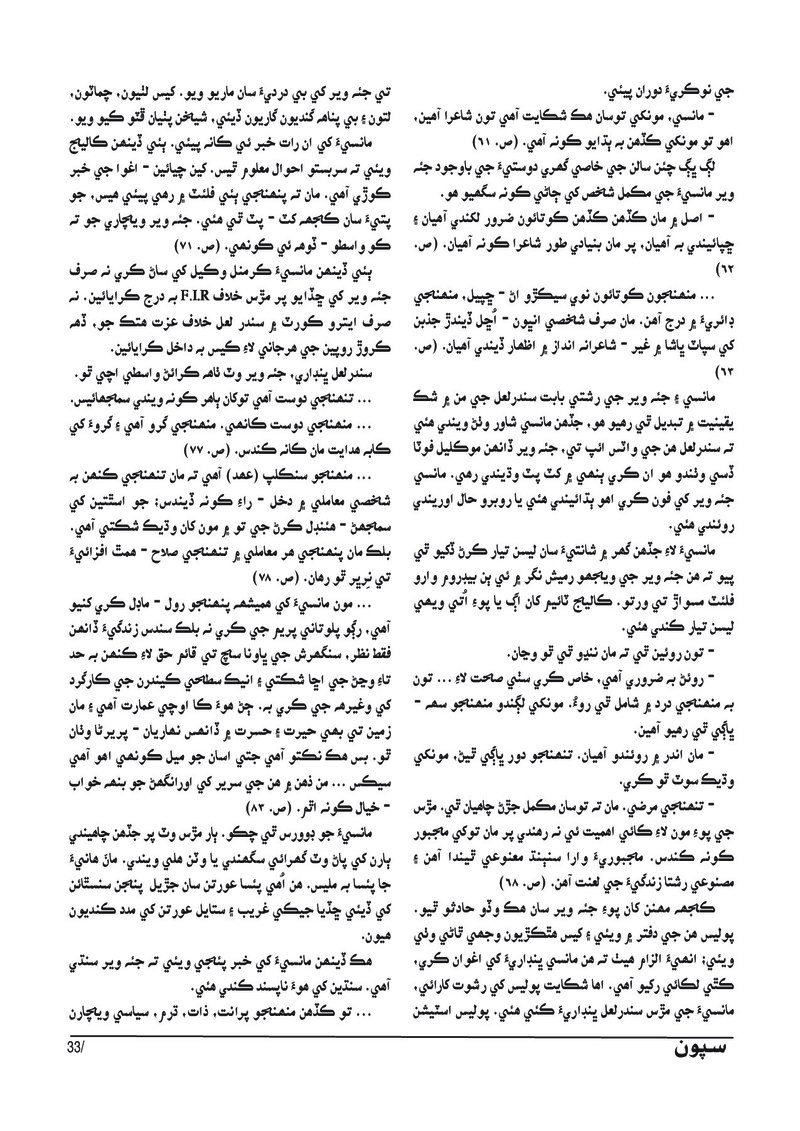 جي نوڪريءَ دوران پيئي.
- مانسي، مونکي توسان هڪ شڪايت آهي تون شاعرا آهين،
اهو تو مونکي ڪڏهن به ٻڌايو ڪونه آهي. (ص. ٦١)
لڳ ڀڳ چئن سالن جي خاصي گهري دوستيءَ جي باوجود جئه
وير مانسيءَ جي مڪمل شخص کي ڄاڻي ڪونه سگهيو هو.
- اصل ۾ مان ڪڏهن ڪڏهن ڪوتائون ضرور لکندي آهيان ۽
ڇپائيندي به آهيان، پر مان بنيادي طور شاعرا ڪونه آهيان. (ص.
٦٢)
... منهنجون ڪوتائون نوي سيڪڙو اڻ - ڇپيل، منهنجي
ڊائريءَ ۾ درج آهن. مان صرف شخصي انڀون - اُڇل ڏيندڙ جذبن
کي سپاٽ ڀاشا ۾ غير - شاعرانه انداز ۾ اظهار ڏيندي آهيان. (ص.
٦٣)
مانسي ۽ جئه وير جي رشتي بابت سندرلعل جي من ۾ شڪ
يقينيت ۾ تبديل ٿي رهيو هو، جڏهن مانسي شاور وٺڻ ويندي هئي
ته سندرلعل هن جي واٽس ائپ تي، جئه وير ڏانهن موڪليل فوٽا
ڏسي وٺندو هو ان ڪري ٻنهي ۾ کٽ پٽ وڌيندي رهي. مانسي
جئه وير کي فون ڪري اهو ٻڌائيندي هئي يا روبرو حال اوريندي
روئندي هئي.
مانسيءَ لاءِ جڏهن گهر ۾ شانتيءَ سان ليسن تيار ڪرڻ ڏکيو ٿي
پيو ته هن جئه وير جي ويجهو رميش نگر ۾ ئي ٻن بيڊروم وارو
فلئٽ مسواڙ تي ورتو. ڪاليج ٽائيم کان اڳ يا پوءِ اُتي ويهي
ليسن تيار ڪندي هئي.
- تون روئين ٿي ته مان ننڍو ٿي ٿو وڃان.
- روئڻ به ضروري آهي، خاص ڪري سٺي صحت لاءِ ... تون
به منهنجي درد ۾ شامل ٿي روءُ. مونکي لڳندو منهنجو سهہ -
ڀاڳي ٿي رهيو آهين.
- مان اندر ۾ روئندو آهيان. تنهنجو دور ڀاڳي ٿيڻ، مونکي
وڌيڪ سوٽ ٿو ڪري.
- تنهنجي مرضي. مان ته توسان مڪمل جڙڻ چاهيان ٿي. مڙس
جي پوءِ مون لاءِ ڪائي اهميت ئي نه رهندي پر مان توکي ماجبور
ڪونه ڪندس. ماجبوريءَ وارا سنٻنڌ معنوعي ٿيندا آهن ۽
مصنوعي رشتا زندگيءَ جي لعنت آهن. (ص. ٦٨)
ڪجهه مهنن کان پوءِ جئه وير سان هڪ وڏو حادثو ٿيو.
پوليس هن جي دفتر ۾ ويئي ۽ کيس هٿڪڙيون وجهي ٿاڻي وٺي
ويئي؛ انهيءَ الزام هيٺ ته هن مانسي ڀنڊاريءَ کي اغوان ڪري،
ڪٿي لڪائي رکيو آهي. اها شڪايت پوليس کي رشوت کارائي،
مانسيءَ جي مڙس سندرلعل ڀنڊاريءَ ڪئي هئي. پوليس اسٽيشن
تي جئه وير کي بي درديءَ سان ماريو ويو. کيس لٺيون، چماٽون،
لتون ۽ بي پناهه گنديون گاريون ڏيئي، شيخن پٺيان ڦٽو ڪيو ويو.
مانسيءَ کي ان رات خبر ئي ڪانه پيئي. ٻئي ڏينهن ڪاليج
ويئي ته سربستو احوال معلوم ٿيس. کين چيائين - اغوا جي خبر
ڪوڙي آهي. مان ته پنهنجي ٻئي فلئٽ ۾ رهي پيئي هيس، جو
پتيءَ سان ڪجهه کٽ - پٽ ٿي هئي. جئه وير ويچاري جو ته
ڪو واسطو - ڏوهه ئي ڪونهي. (ص. ٧١)
ٻئي ڏينهن مانسيءَ ڪرمنل وڪيل کي ساڻ ڪري نه صرف
جئه وير کي ڇڏايو پر مڙس خلاف F.I.R به درج ڪرايائين. نه
صرف ايترو ڪورٽ ۾ سندر لعل خلاف عزت هتڪ جو، ڏهه
ڪروڙ روپين جي هرجاني لاءِ ڪيس به داخل ڪرايائين.
سندرلعل ڀنڊاري، جئه وير وٽ ٺاهه ڪرائڻ واسطي اچي ٿو.
... تنهنجي دوست آهي توکان ٻاهر ڪونه ويندي سمجهائيس.
... منهنجي دوست ڪانهي. منهنجي گرو آهي ۽ گروءَ کي
ڪابه هدايت مان ڪانه ڪندس. (ص. ٧٧)
... منهنجو سنڪلپ (عهد) آهي ته مان تنهنجي ڪنهن به
شخصي معاملي ۾ دخل - راءِ ڪونه ڏيندس؛ جو اسٿتين کي
سمجهڻ - هئنڊل ڪرڻ جي تو ۾ مون کان وڌيڪ شڪتي آهي.
بلڪ مان پنهنجي هر معاملي ۾ تنهنجي صلاح - همٿ افزائيءَ
تي نِرڀر ٿو رهان. (ص. ٧٨)
... مون مانسيءَ کي هميشهه پنهنجو رول - ماڊل ڪري کنيو
آهي، رڳو پلوتاني پريم جي ڪري نه بلڪ سندس زندگيءَ ڏانهن
فقط نظر، سنگهرش جي ڀاونا سچ تي قائم حق لاءِ ڪنهن به حد
تاءِ وڃڻ جي اڇا شڪتي ۽ انيڪ سطحي کيندرن جي ڪارگرد
کي وغيرهه جي ڪري به. ڄڻ هوءَ ڪا اوچي عمارت آهي ۽ مان
زمين تي بهي حيرت ۽ حسرت ۾ ڏانهس نهاريان - پريرڻا وٺان
ٿو. بس هڪ نڪتو آهي جتي اسان جو ميل ڪونهي اهو آهي
سيڪس ... من ذهن ۾ هن جي سرير کي اورانگهڻ جو بنهه خواب
- خيال ڪونه اٿم. (ص. ٨٣)
مانسيءَ جو ڊوورس ٿي چڪو. ٻار مڙس وٽ پر جڏهن چاهيندي
ٻارن کي پاڻ وٽ گهرائي سگهندي يا وٽن هلي ويندي. مان هانيءَ
جا پئسا به مليس. هن اُهي پئسا عورتن سان جڙيل پنجن سنسٿائن
کي ڏيئي ڇڏيا جيڪي غريب ۽ ستايل عورتن کي مدد ڪنديون
هيون.
هڪ ڏينهن مانسيءَ کي خبر پئجي ويئي ته جئه وير سنڌي
آهي. سنڌين کي هوءَ ناپسند ڪندي هئي.
... تو ڪڏهن منهنجو پرانت، ذات، ڌرم، سياسي ويچارن
سپون
33/